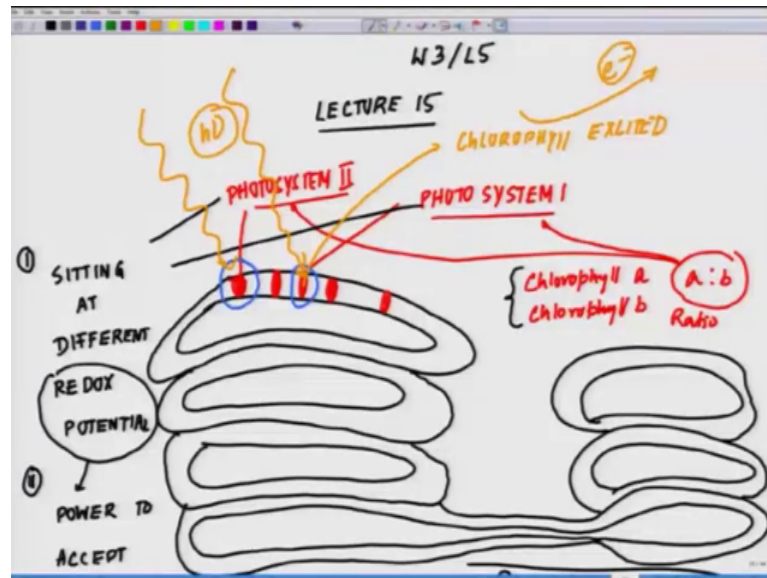 W3/L5
e-
LECTURE 15
hυ
CHLOROPHYLL EXCITED
PHOTOSYSTEM II
PHOTO SYSTEM I
I
SITTING
AT
DIFFERENT
REDOX
POTENTIAL
Chlorophyll a
Chlorophyll b
a:b
Ratio
II
POWER TO
ACCEPT